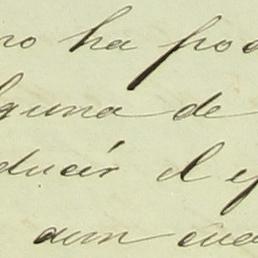 no ha pod
lguna de
ducir el ef
aun cua